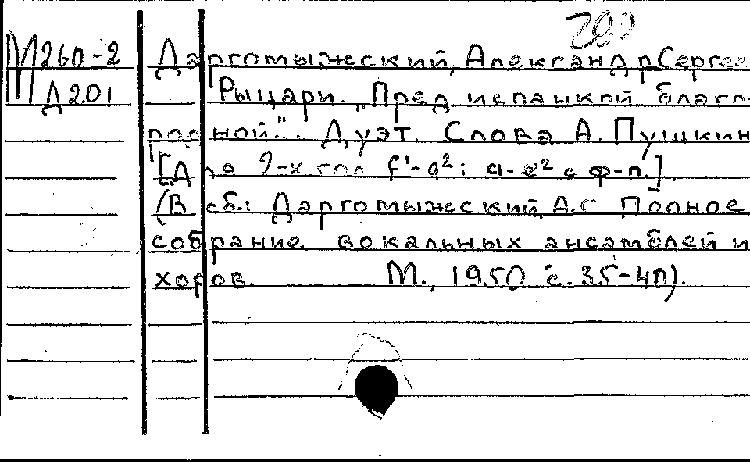 200
М260-2 Даргомыжский, Александр Серге
Д201 Рыцари. „Пред испанкой благо
родной". Дуэт. Слова А. Пушкин
[Для 2-х гол f¹-g²; a-e² с ф-п.]
(В сб.: Даргомыжский, А.С. Полное
собрание вокальных ансамблей и
хоров. М., 1950 с. 35-40).